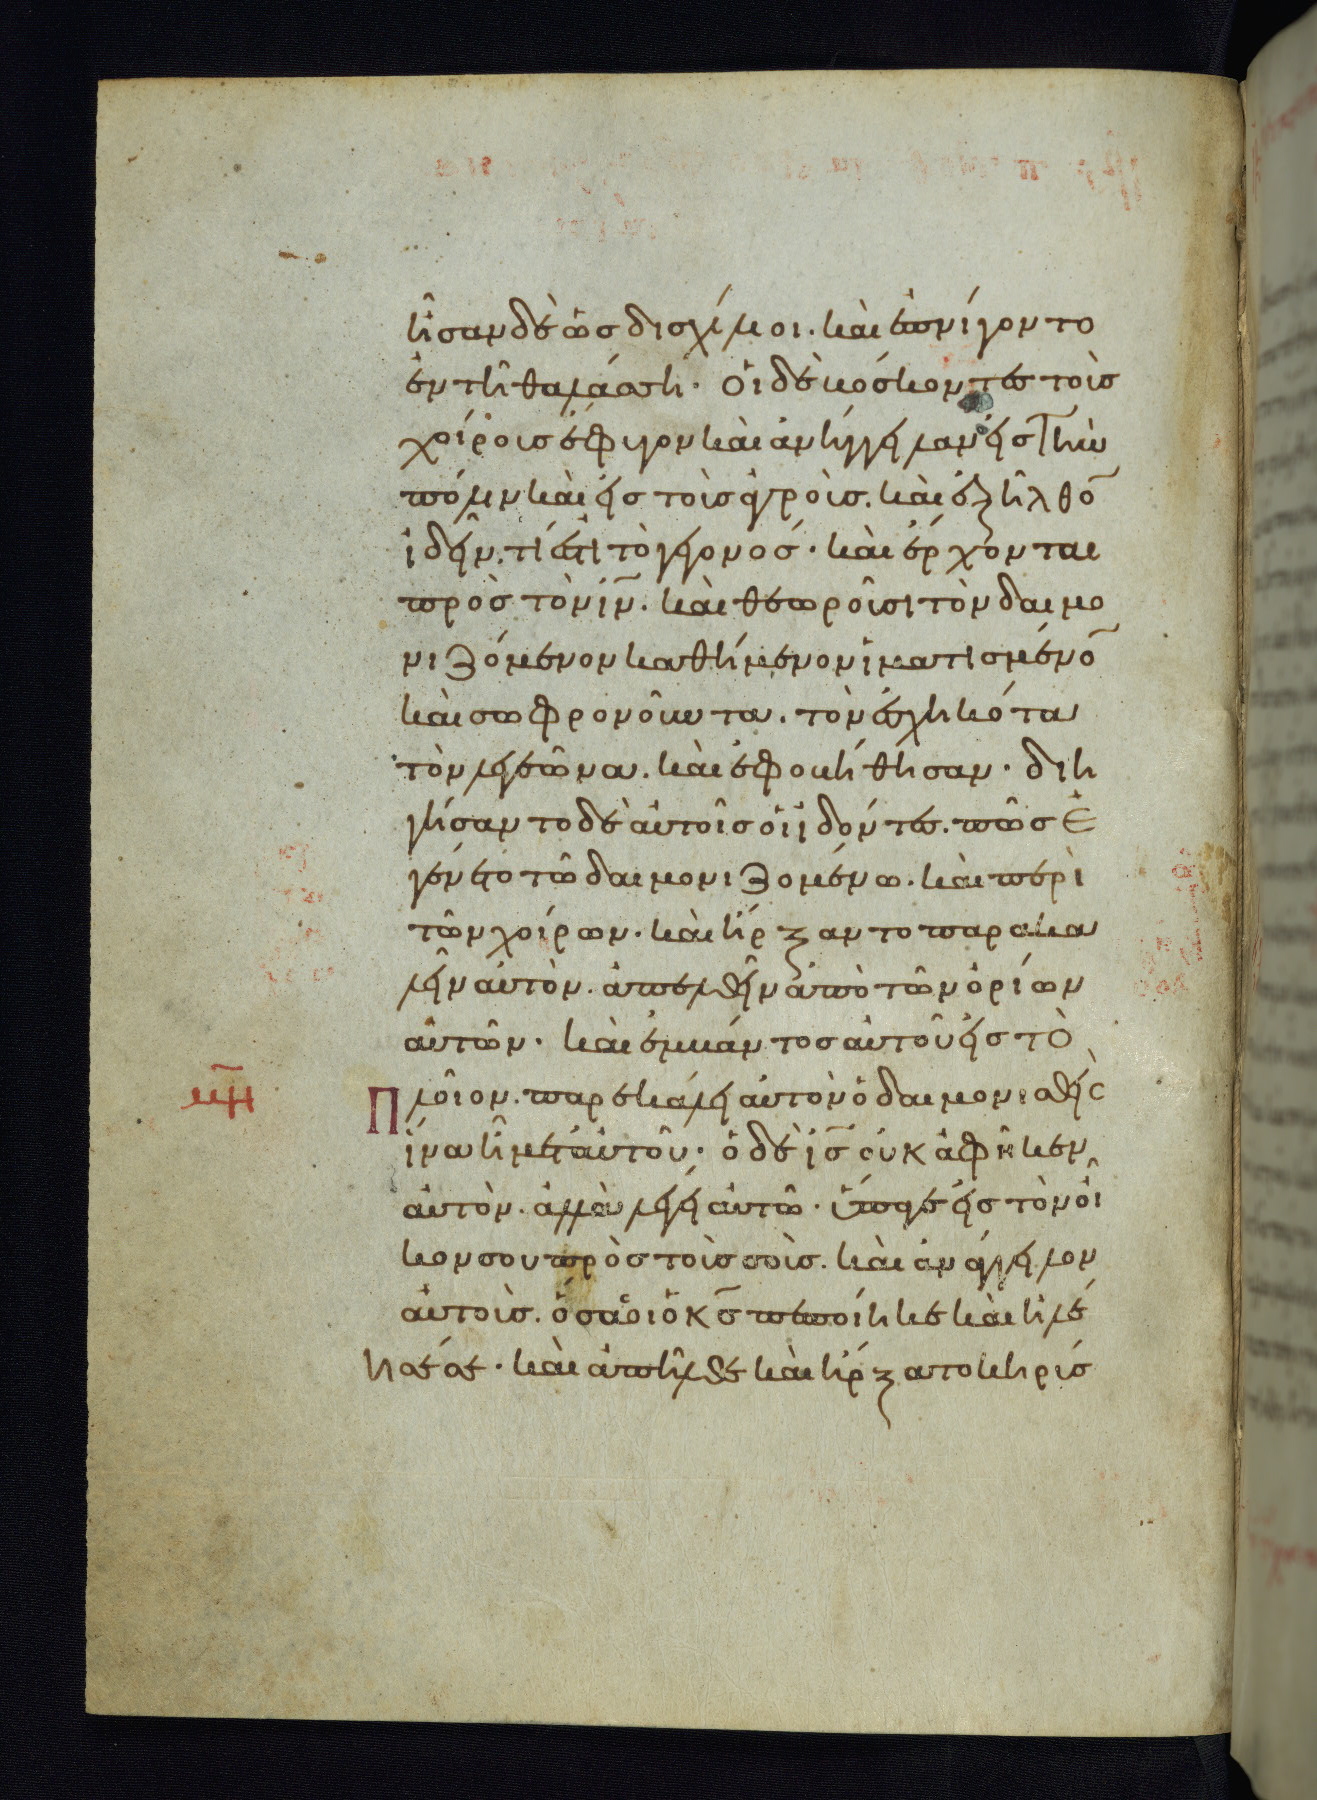 ἦσαν δὲ ὡς δισχίλιοι. καὶ ἐπνίγοντο
ἐν τῆ θαλάσση. οἱ δὲ βόσκοντες τοὺς
χοίρους ἔφυγον καὶ ἀνήγγειλαν εἰς τὴν
πόλιν καὶ εἰς τοὺς ἀγρούς. καὶ ἐξῆλθο̅
ἰδεῖν. τί ἐστι τὸ γεγονός. καὶ ἔρχονται
πρὸς τὸν ι̅ν̅. καὶ θεωροῦσι τὸν δαιμο
νιζόμενον καθήμενον ἱματισμένο̅
καὶ σωφρονοῦντα. τὸν ἐσχηκότα
τὸν λεγεῶνα. καὶ ἐφοβήθησαν. διη
γήσαντο δὲ αὐτοῖς οἱ ἰδόντες. πῶς ἐ
γένετο τῶ δαιμονιζομένω. καὶ περὶ
τῶν χοίρων. καὶ ἤρξαντο παρακα
λεῖν αὐτὸν. ἀπελθεῖν ἀπὸ τῶν ὁρίων
αὐτῶν. καὶ ἐμβάντος αὐτοῦ εἰς τὸ
μη̅ Πλοῖον. παρεκάλει αὐτὸν ὁ δαιμονισθεὶς
ἵνα ἦ μετ' αὐτοῦ. ὁ δὲ ι̅ς̅ οὐκ ἀφῆκεν
αὐτὸν. ἀλλὰ λέγει αὐτῶ. ὕπαγε εἰς τὸν οἶ
κον σου πρὸς τοὺς σοὺς. καὶ ἀνάγγειλον
αὐτοῖς. ὅσα σοι ὁ κ̅ς̅ πεποίηκε καὶ ἠλέ
ησέ σε. καὶ ἀπῆλθε καὶ ἤρξατο κηρύσ